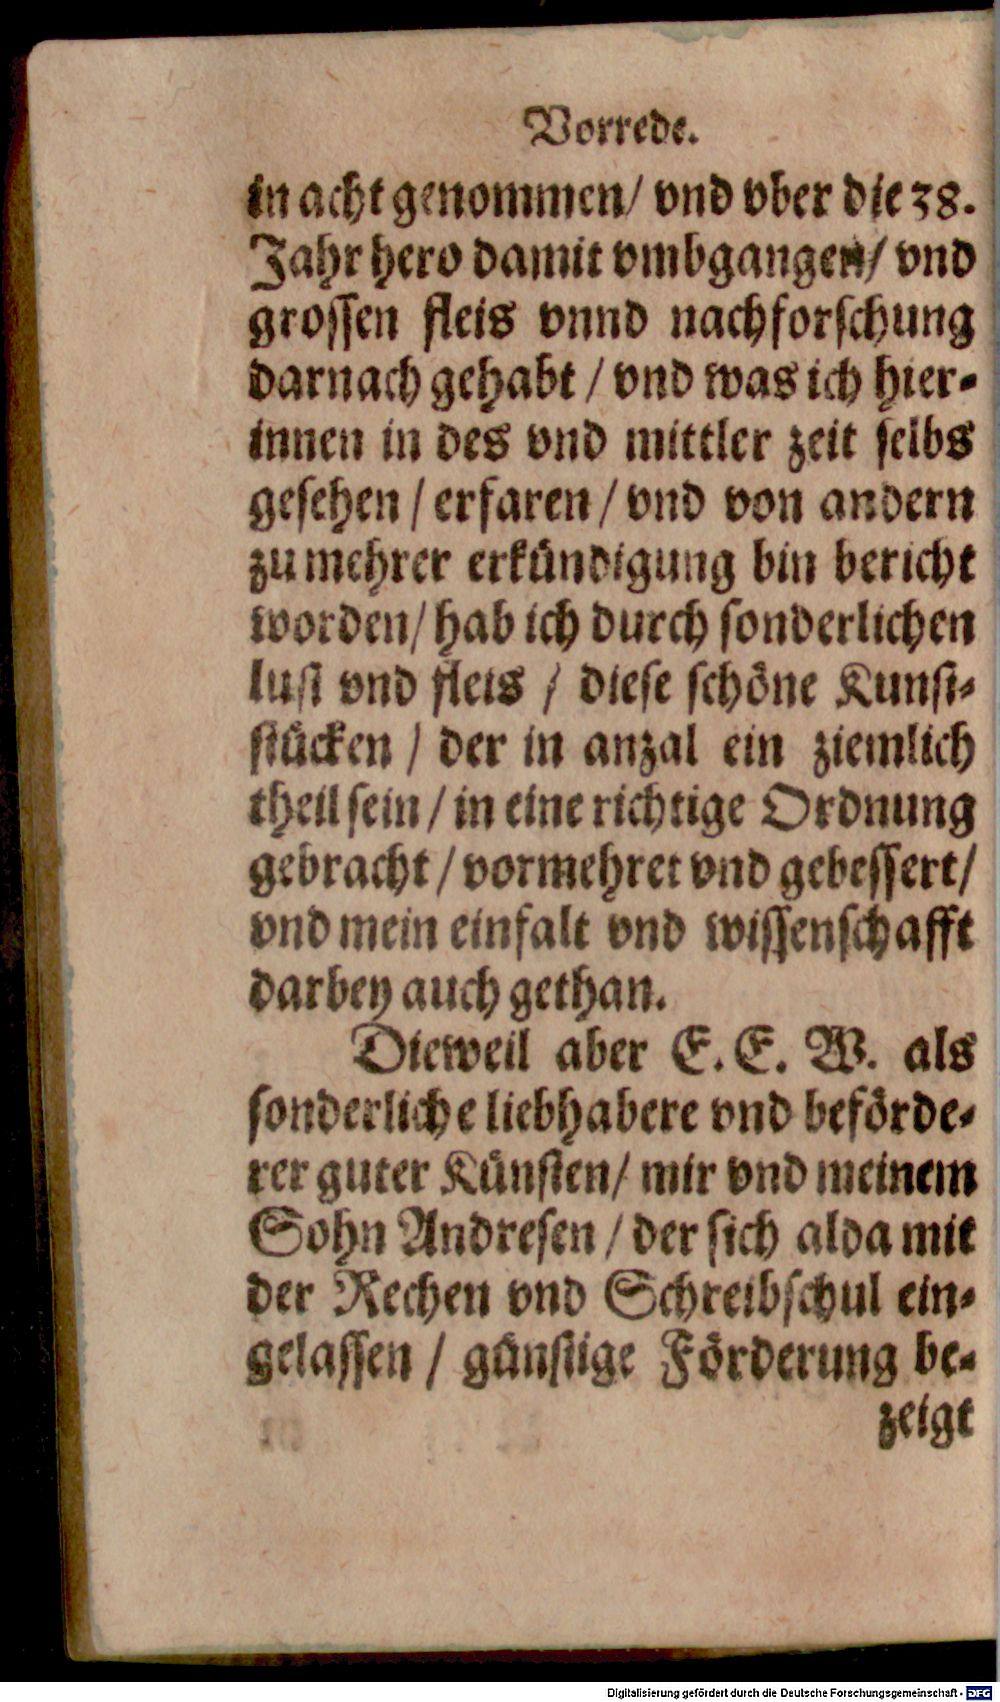 Vorrede.
in acht genommen/ vnd vber die 38.
Jahr hero damit vmbgangen/ vnd
grossen fleis vnnd nachforschung
darnach gehabt / vnd was ich hier-
innen in des vnd mittler zeit selbs
gesehen / erfaren / vnd von andern
zu mehrer erkündigung bin bericht
worden/ hab ich durch sonderlichen
lust vnd fleis / diese schöne Kunst-
stücken / der in anzal ein ziemlich
theil sein / in eine richtige Ordnung
gebracht / vormehret vnd gebessert/
vnd mein einfalt vnd wissenschafft
darbey auch gethan.
Dieweil aber E. E. W. als
sonderliche liebhabere vnd beförde-
rer guter Künsten/ mir vnd meinem
Sohn Andresen / der sich alda mit
der Rechen vnd Schreibschul ein-
gelassen / günstige Förderung be-
zeigt
Digitalisierung gefördert durch die Deutsche Forschungsgemeinschaft - DFG